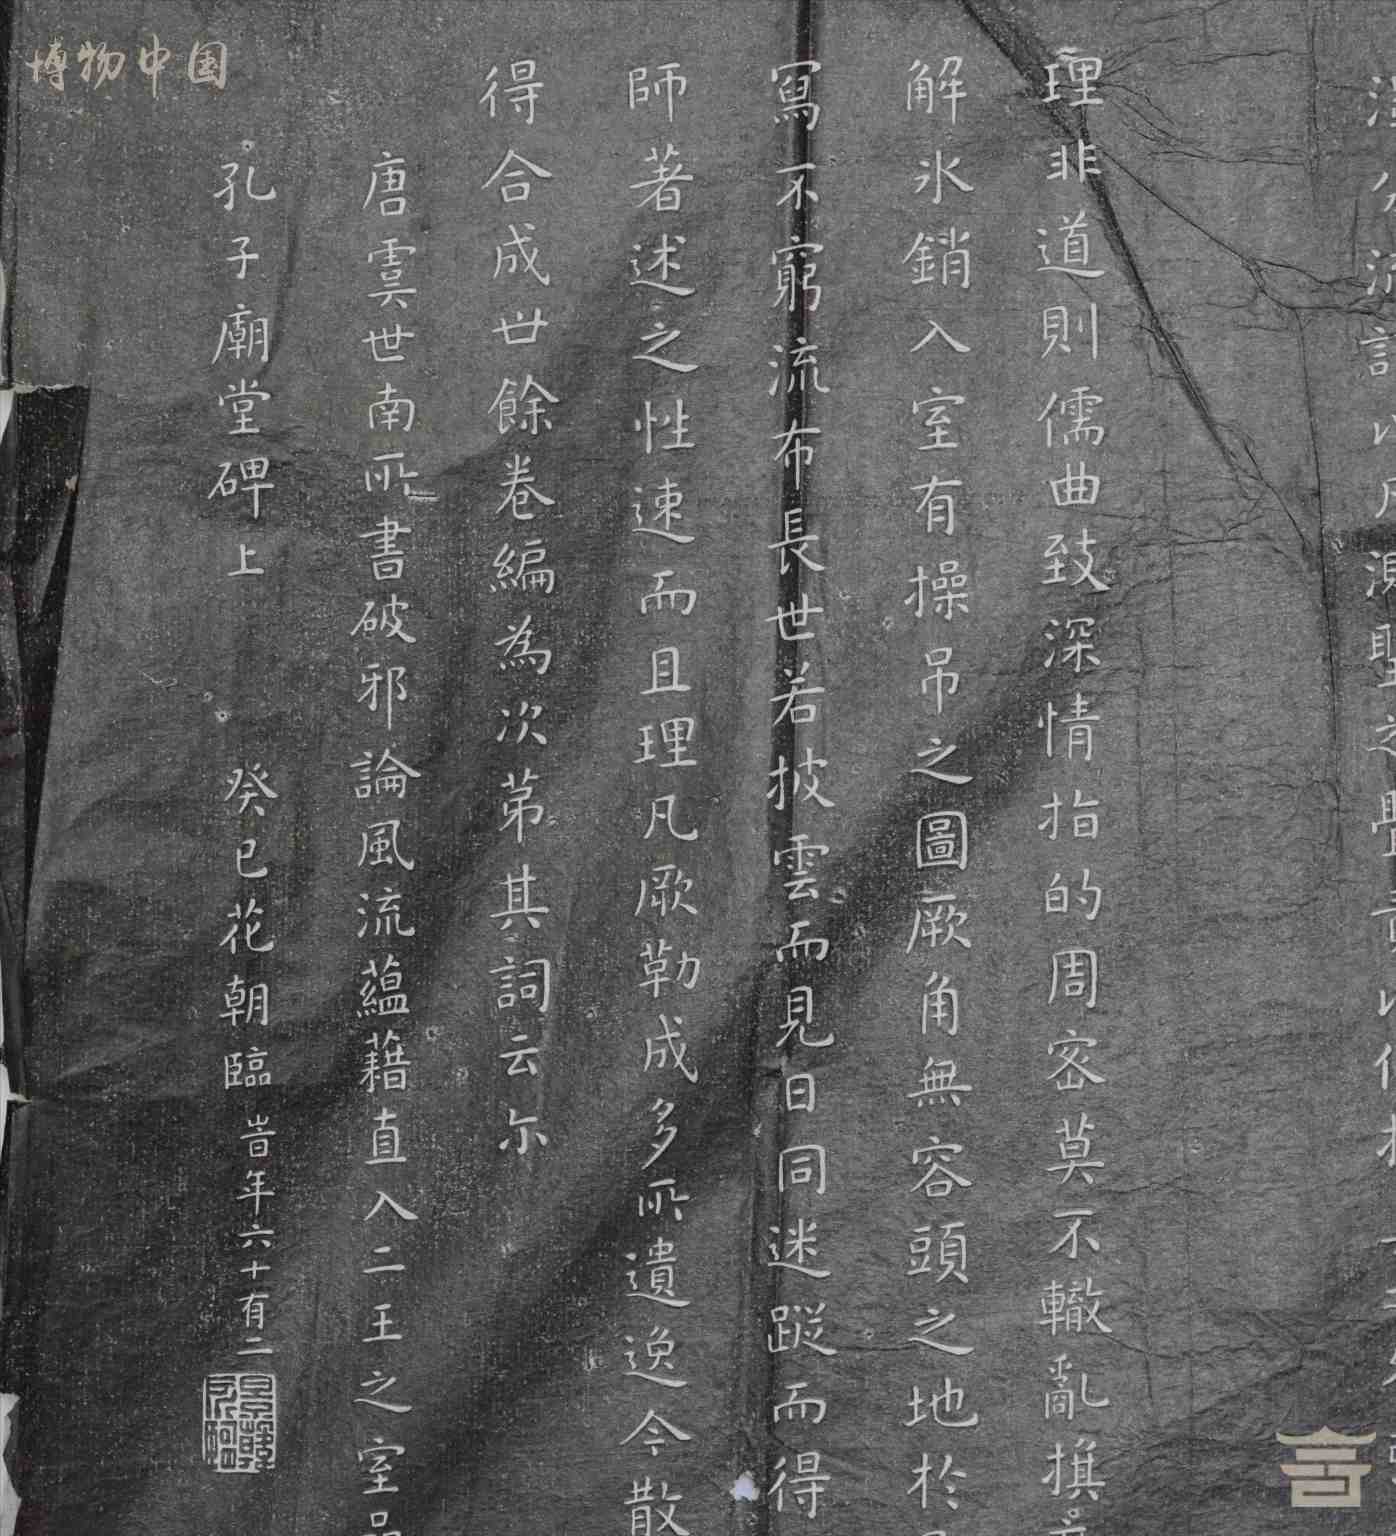 理非道則儒曲致深情指的周密莫不轍亂
解氷銷入室有操吊之圖厥角無容頭之地於
寫不窮流布長世若披雲而見日同迷蹤而得
師著述之性速而且理凡厥勒成多所遺逸今散
得合成廿餘卷編為次第其詞云尓
唐虞世南所書破邪論風流蘊藉直入二王之室
孔子廟堂碑上 癸巳花朝臨 旹年六十有二
博物中国